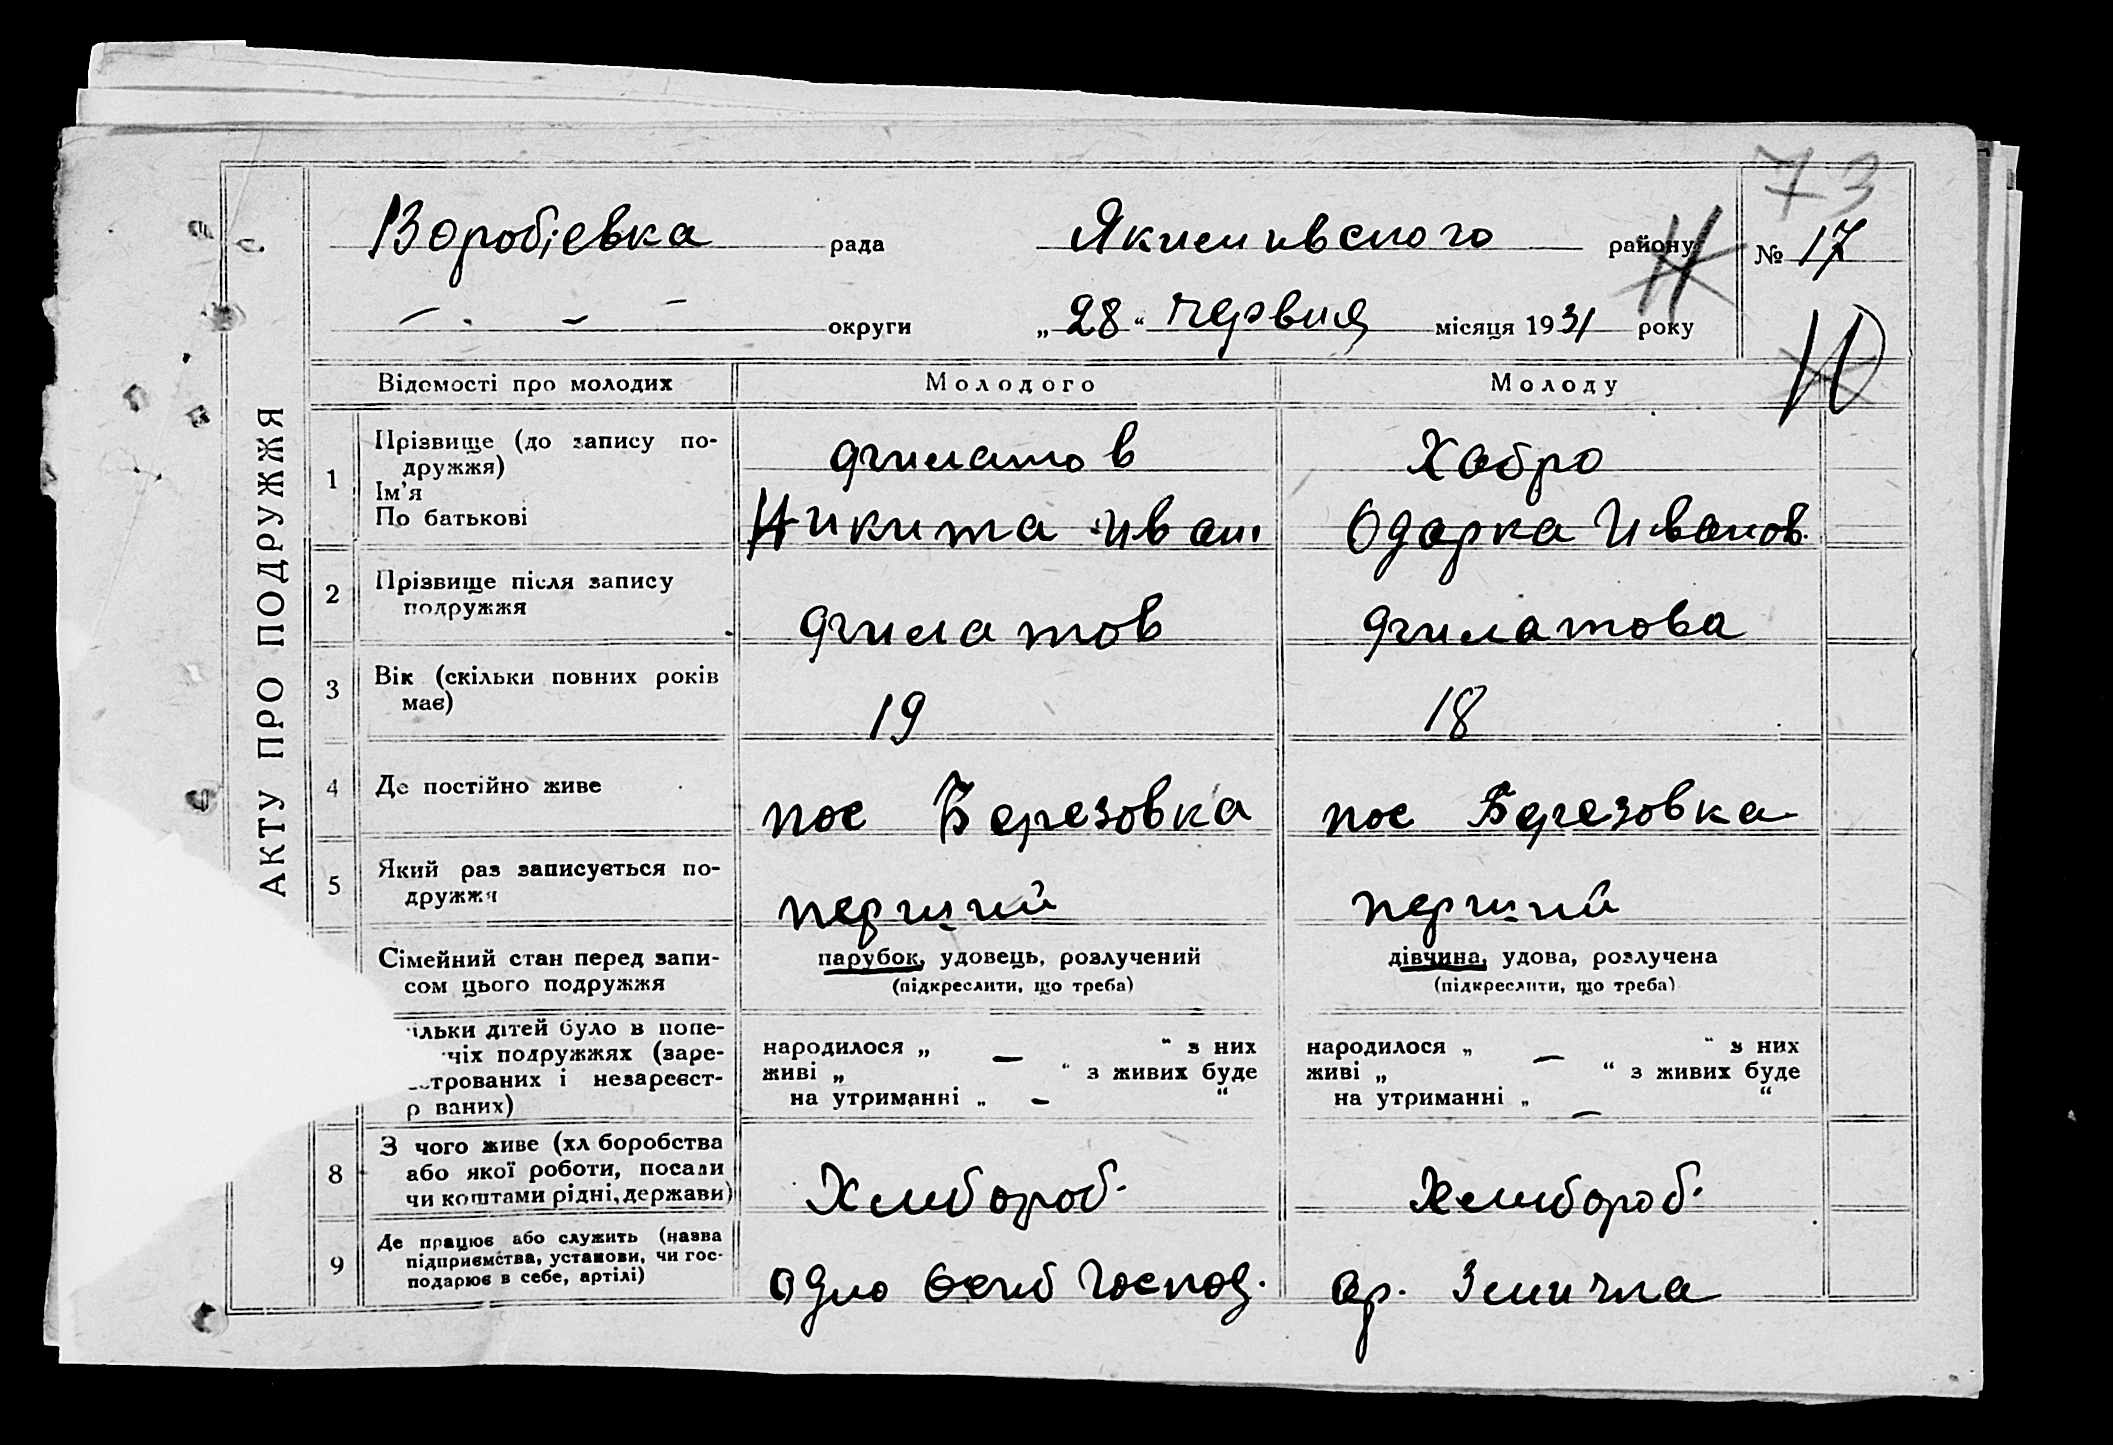 73
Воробієвка рада Якимивского району № 17
округи „ 28 “ червня місяця 1931 року
АКТУ ПРО ПОДРУЖЖЯ
Відомості про молодих Молодого Молоду
1 Прізвище (до запису по-
дружжя) Хабро
Ім'я
По батькові Никита Иван Одарка Иванов.
2 Прізвище після запису
подружжя
3 Вік (скільки повних років
має) 19 18
4 Де постійно живе пос Березовка пос Березовка
5 Який раз записується по-
дружжя перший перший
Сімейний стан перед запи- парубок, удовець, розлучений дівчина, удова, розлучена
сом цього подружжя (підкреслити, що треба) (підкреслити, що треба)
ільки дітей було в попе- народилося „ — “ з них народилося „ — “ з них
ніх подружжях (заре- живі „ “ з живих буде живі „ “ з живих буде
строваних і незареєст- на утриманні „ — “ на утриманні „ — “
р ваних)
8 З чого живе (хл боробства
або якої роботи, посади
чи коштами рідні, держави) Хлибороб. Хлибороб.
9 Де працює або служить (назва
підприємства, установи, чи гос-
подарює в себе, артілі) одно осиб господ. ар. Змичка